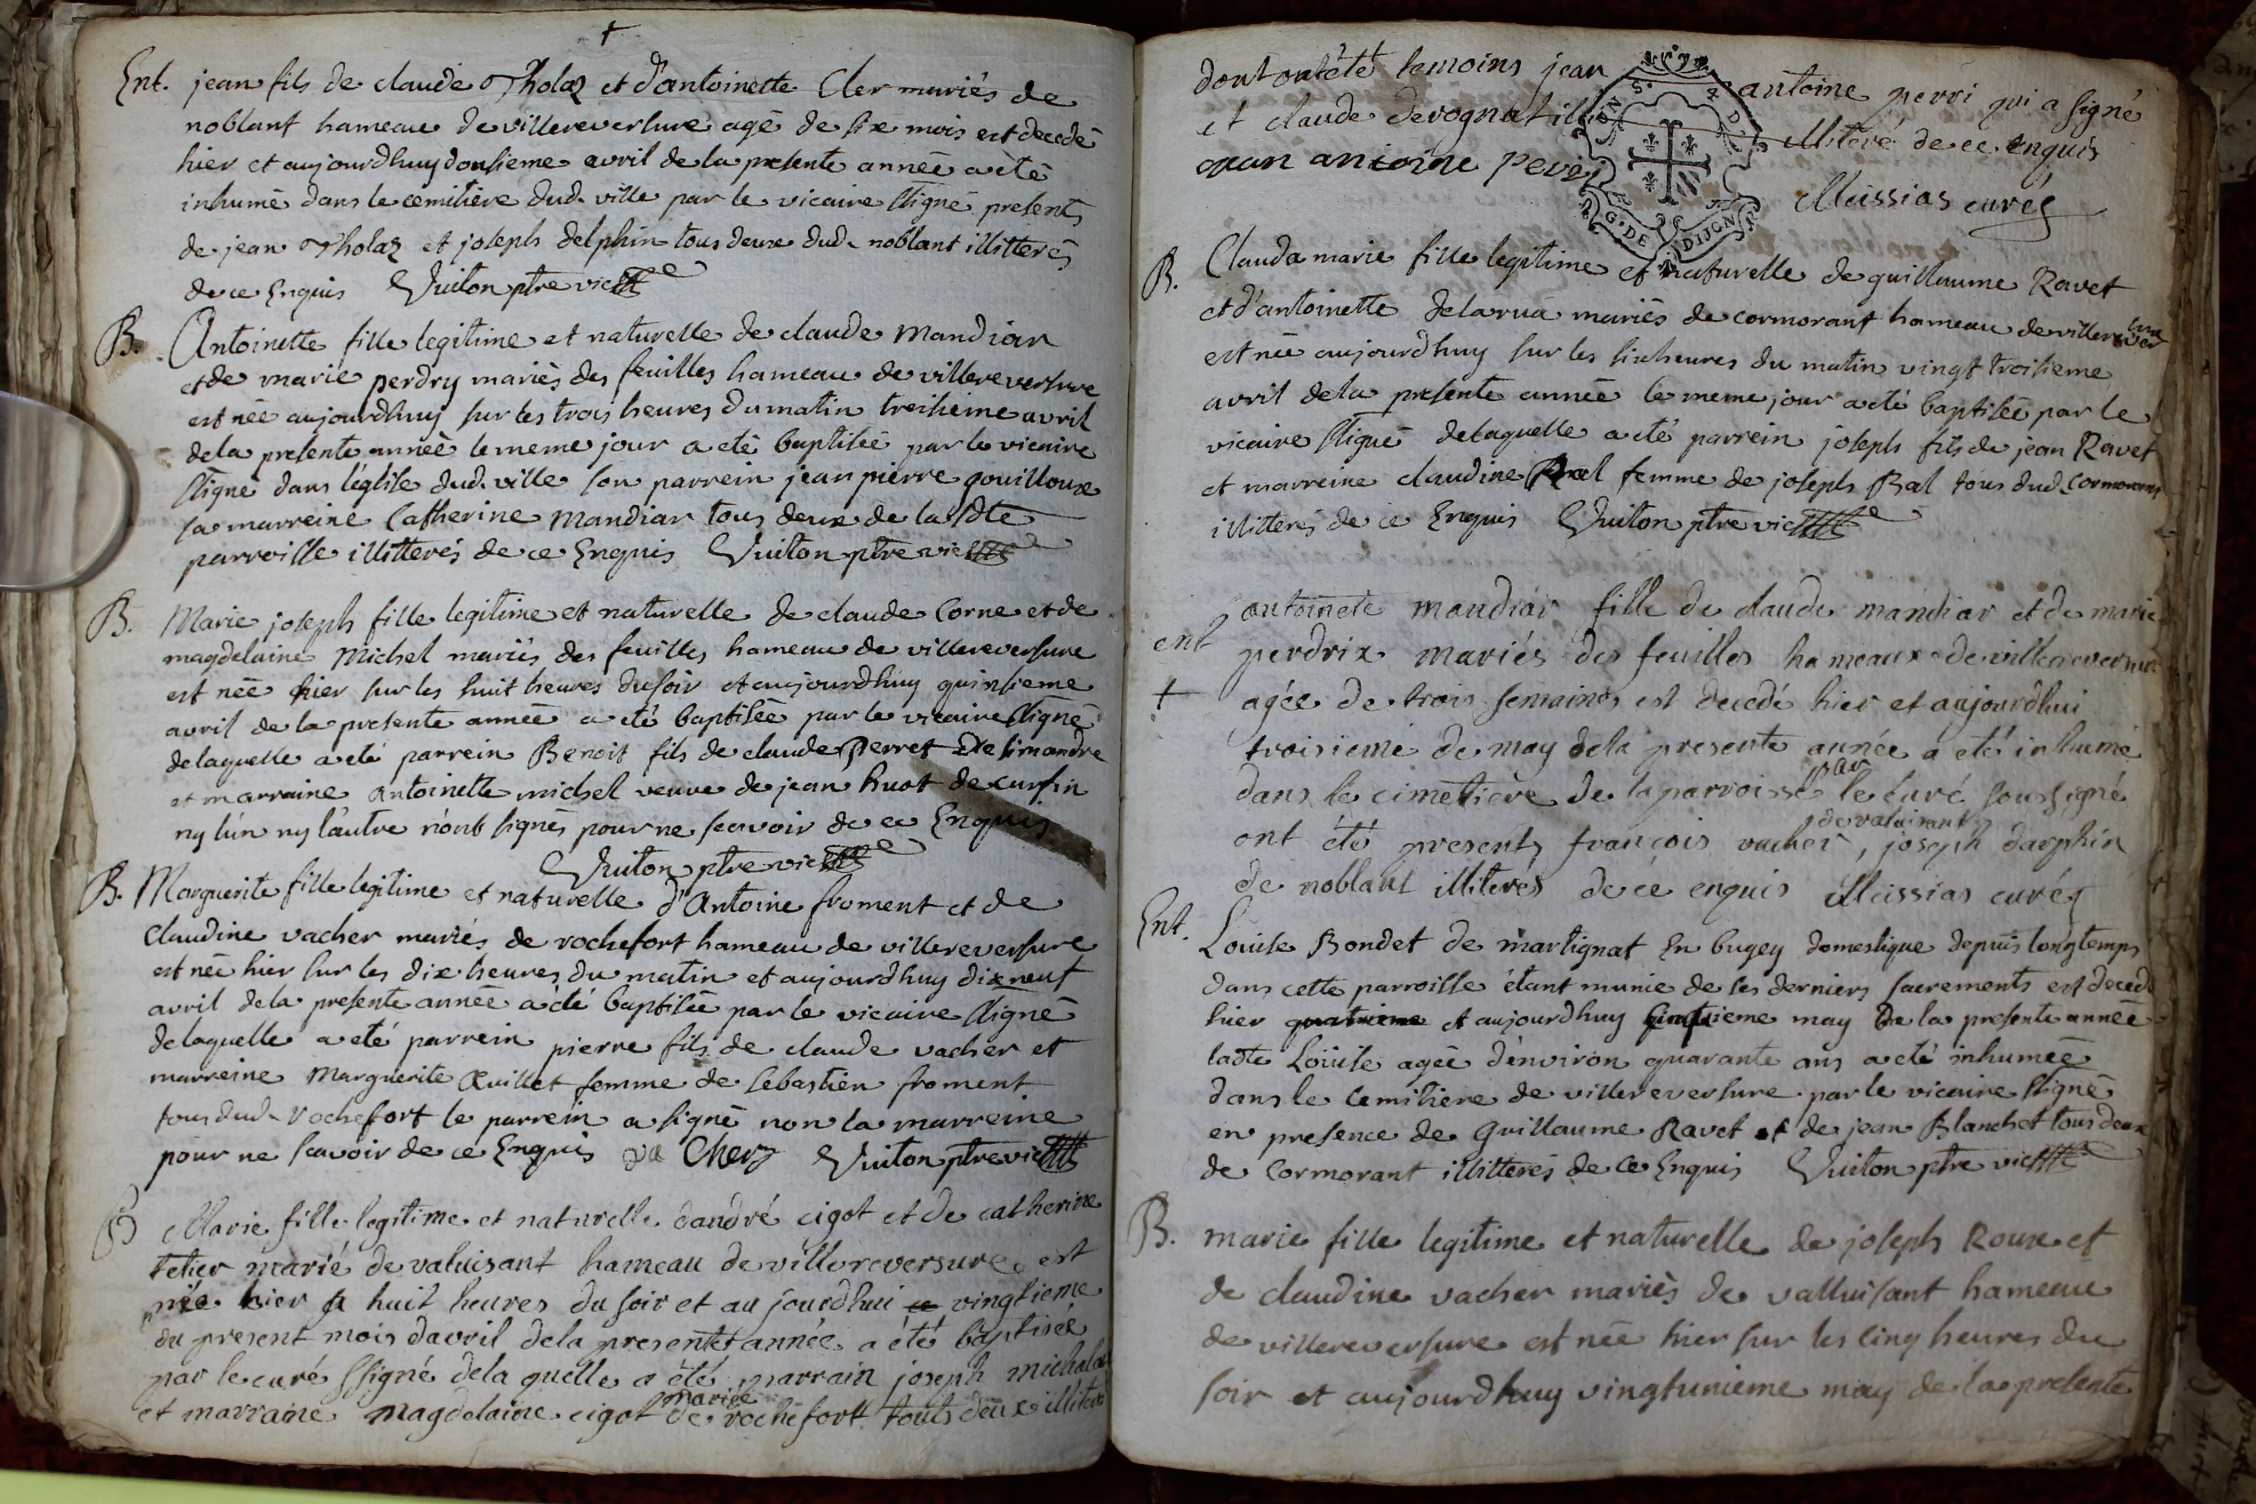 +
Ent. jean fils de claude Tholaz et d'antoinette Cler mariés de
noblant hameau de villereversure agé de six mois est decedé
hier et aujourdhuy dousieme avril de la presente année a été
inhumé dans le cemitière dud. ville par le vicaire ssigné presents
de jean Tholaz et joseph delphin tous deux dud. noblant illitterés
de ce Enquis Vuiton ptre vic
B. Antoinette fille legitime et naturelle de claude Mandiar
et de marie perdry mariés des feuilles hameau de villereversure
est née aujourdhuy sur les trois heures du matin treisieme avril
de la presente année le meme jour a eté baptisée par le vicaire
ssigné dans l'église dud. ville son parrein jean pierre gouilloux
sa marreine Catherine Mandiar tous deux de la sdte
parroisse illitterés de ce Enquis Vuiton ptre vic
B. Marie joseph fille legitime et naturelle de claude Corne et de
magdelaine Michel mariés des feuilles hameau de villereversure
est née hier sur les huit heures du soir et aujourdhuy quinsieme
avril de la presente année a eté baptisée par le vicaire ssigné
de laquelle a eté parrein Benoit fils de claude perret de simandre
et marraine antoinette michel veuve de jean huot de cursin
ny lún ny láutre n'ont signés pour ne scavoir de ce Enquis
Vuiton ptre vic
B. Marguerite fille legitime et naturelle d'Antoine froment et de
Claudine vacher mariés de rochefort hameau de villereversure
est née hier sur les dix heures du matin et aujourdhuy dixneuf
avril de la presente année a été baptisée par le vicaire ssigné
de laquelle a eté parrein pierre fils de claude vacher et
marreine Marguerite Quillet femme de sebastien froment
tous dud. rochefort le parrein a signé non la marreine
pour ne scavoir de ce Enquis va Cherz Vuiton ptre vic
B Marie fille legitime et naturelle dandré cigot et de catherine
tetier marié de valuisant hameau de villereversure est
née hier a huit heures du soir et au jourdhui ce vingtieme
du present mois davril de la presente année a été baptisée
par le curé ssigné de la quelle a été parrain joseph
et marraine magdelaine cigot mariée de rochefort touts deux
dont ont été temoins jean antoine perri qui a signé
et claude devognat illiteré de ce enquis
jean antoine
Meissias curé
G. DE DIJON
B. Clauda marie fille legitime et naturelle de guillaume Ravet
et d'antoinette delarua mariés de cormorant hameau de
est née aujourdhuy sur les sixheures du matin vingt troisieme
avril de la presente année le meme jour a eté baptisée par le
vicaire ssigné de laquelle a eté parrein joseph fils de jean Ravet
et marreine claudine femme de joseph Bal tous dud. Cormorant
illitterés de ce Enquis Vuiton ptre vic
antoinete mandiar fille de claude mandiar et de marie
ent perdrix mariés des feuilles hameaux de villereversure
+ agée de trois semaines est decedé hier et aujourdhui
troisieme de may dela presente année a eté inhumé
dans le cimetière de la parroisse par le curé soussigné
ont été presents françois vacher de valuisant, joseph darphin
de noblant illiterés de cé enquis Meissias curé
Ent. Louise Bondet de martignat En bugey domestique depuis longtemps
dans cette parroisse étant munie de ses derniers sacrements est decedé
hier quatrieme et aujourdhuy sinquieme may de la presente année
ladte Loüise agée d'environ quarante ans a eté inhumée
dans le cemitière de villereversure par le vicaire ssigné
en presence de Guillaume Ravet et de jean Blanchet tous deux
de Cormorant illitterés de ce Enquis Vuiton ptre vic
B. marie fille legitime et naturelle de joseph Roux et
de claudine vacher mariés de valluisant hameau
de villereversure est née hier sur les cinq heures du
soir et aujourdhuy vingtunieme may de la presente